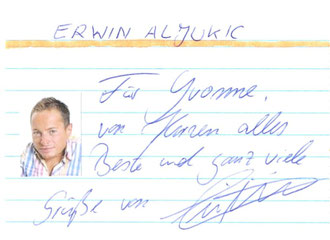 ERWIN ALJUKIC
Für Yvonne,
von Herzen alles
Beste und ganz viele
Grüße von